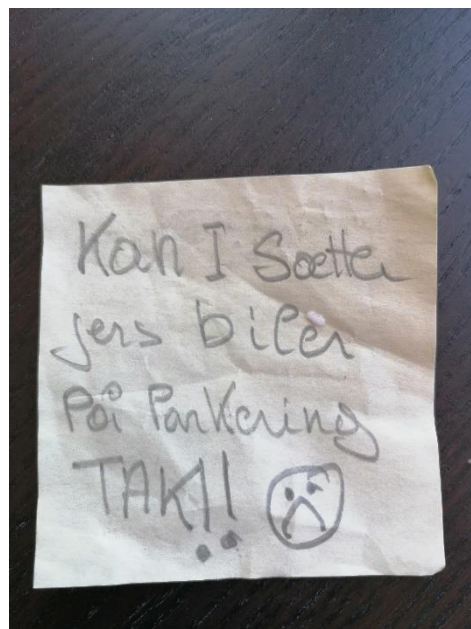 Kan I Sætte
jers biler
På Parkering
TAK!!